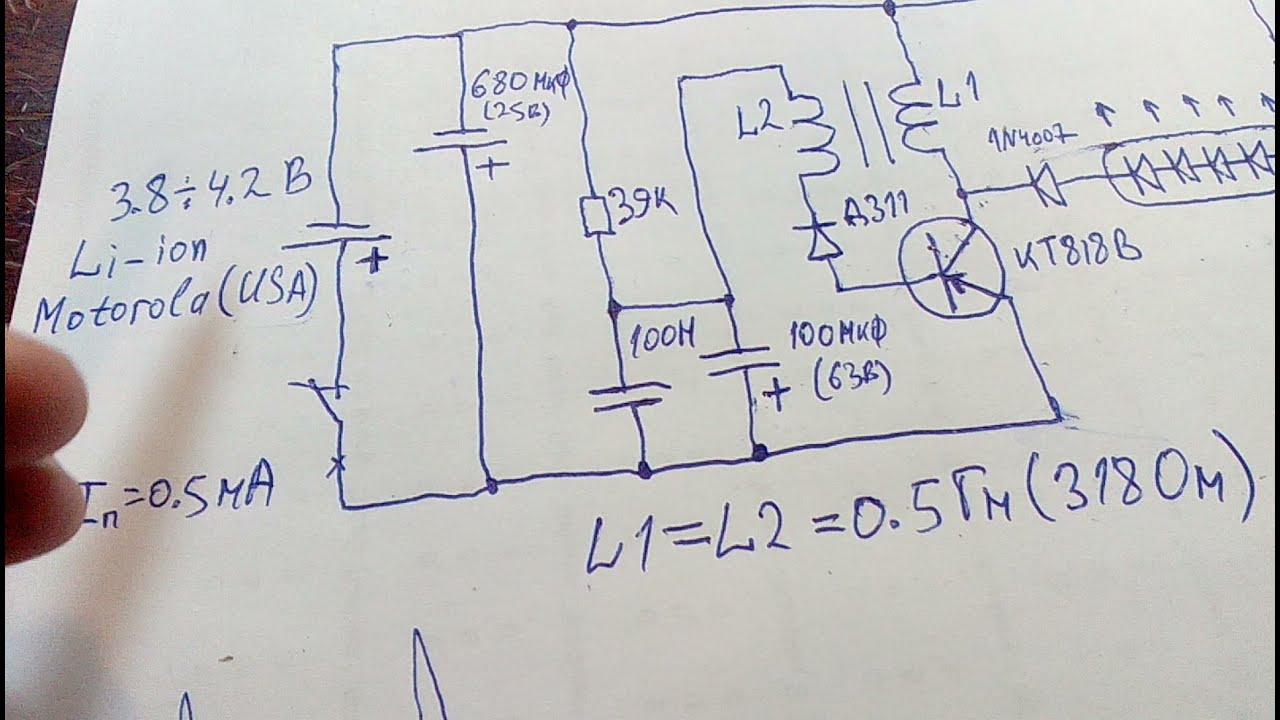 680мкФ
(25В)
L2
L1
1N4007
3.8÷4.2 В
Li-ion
Motorola (USA)
+
+
39К
Д311
КТ818В
100Н
100мкФ
(63В)
+
Iп=0.5мА
L1=L2=0.5Гн(3180м)